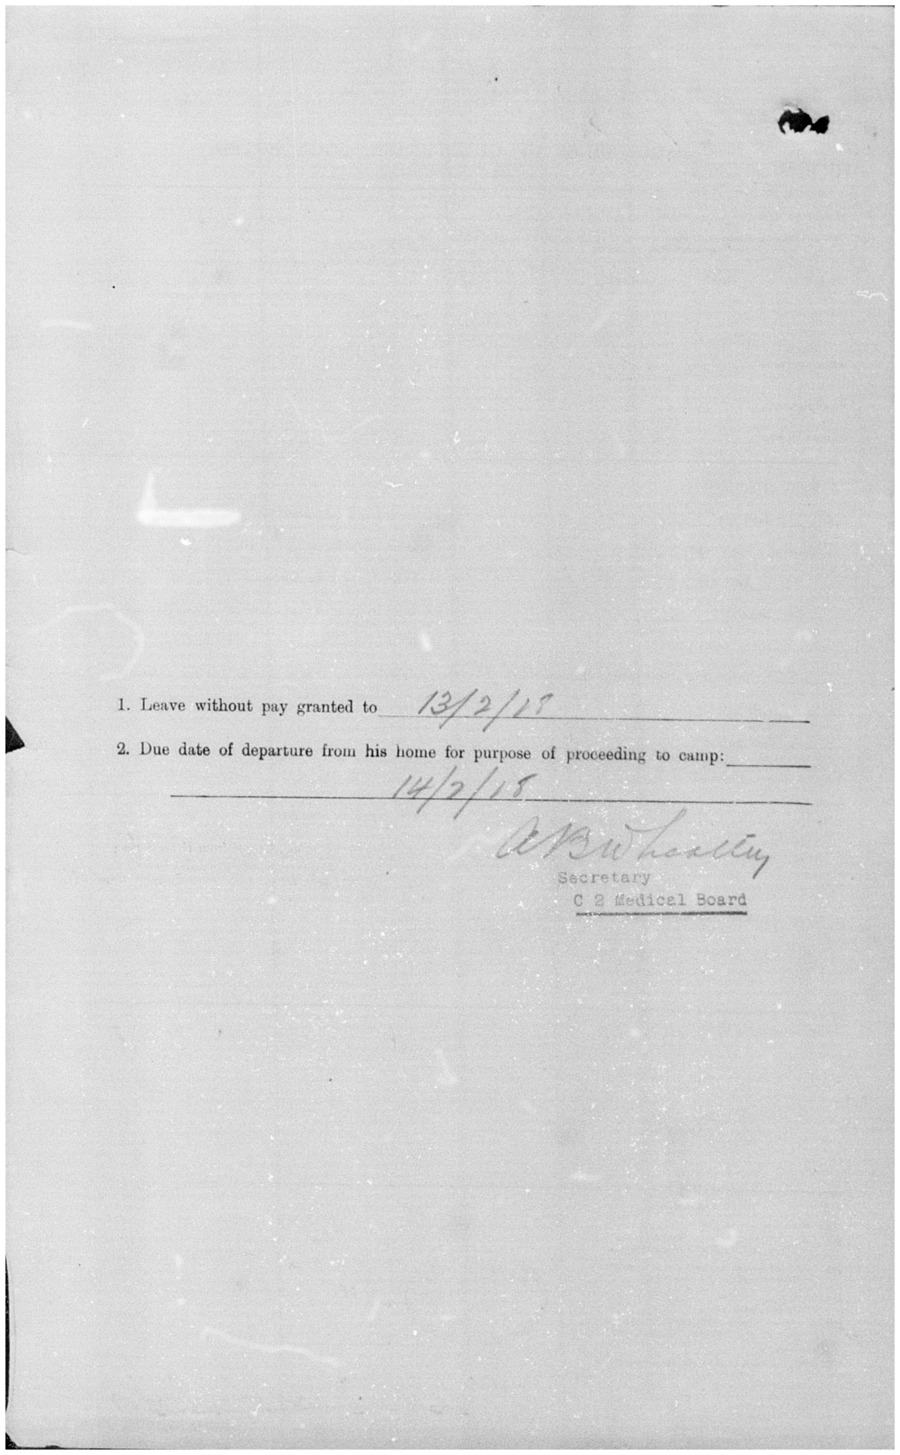 1. Leave without pay granted to 13/2/18
2. Due date of departure from his home for purpose of proceeding to camp:
14/2/18
Secretary
C 2 Medical Board